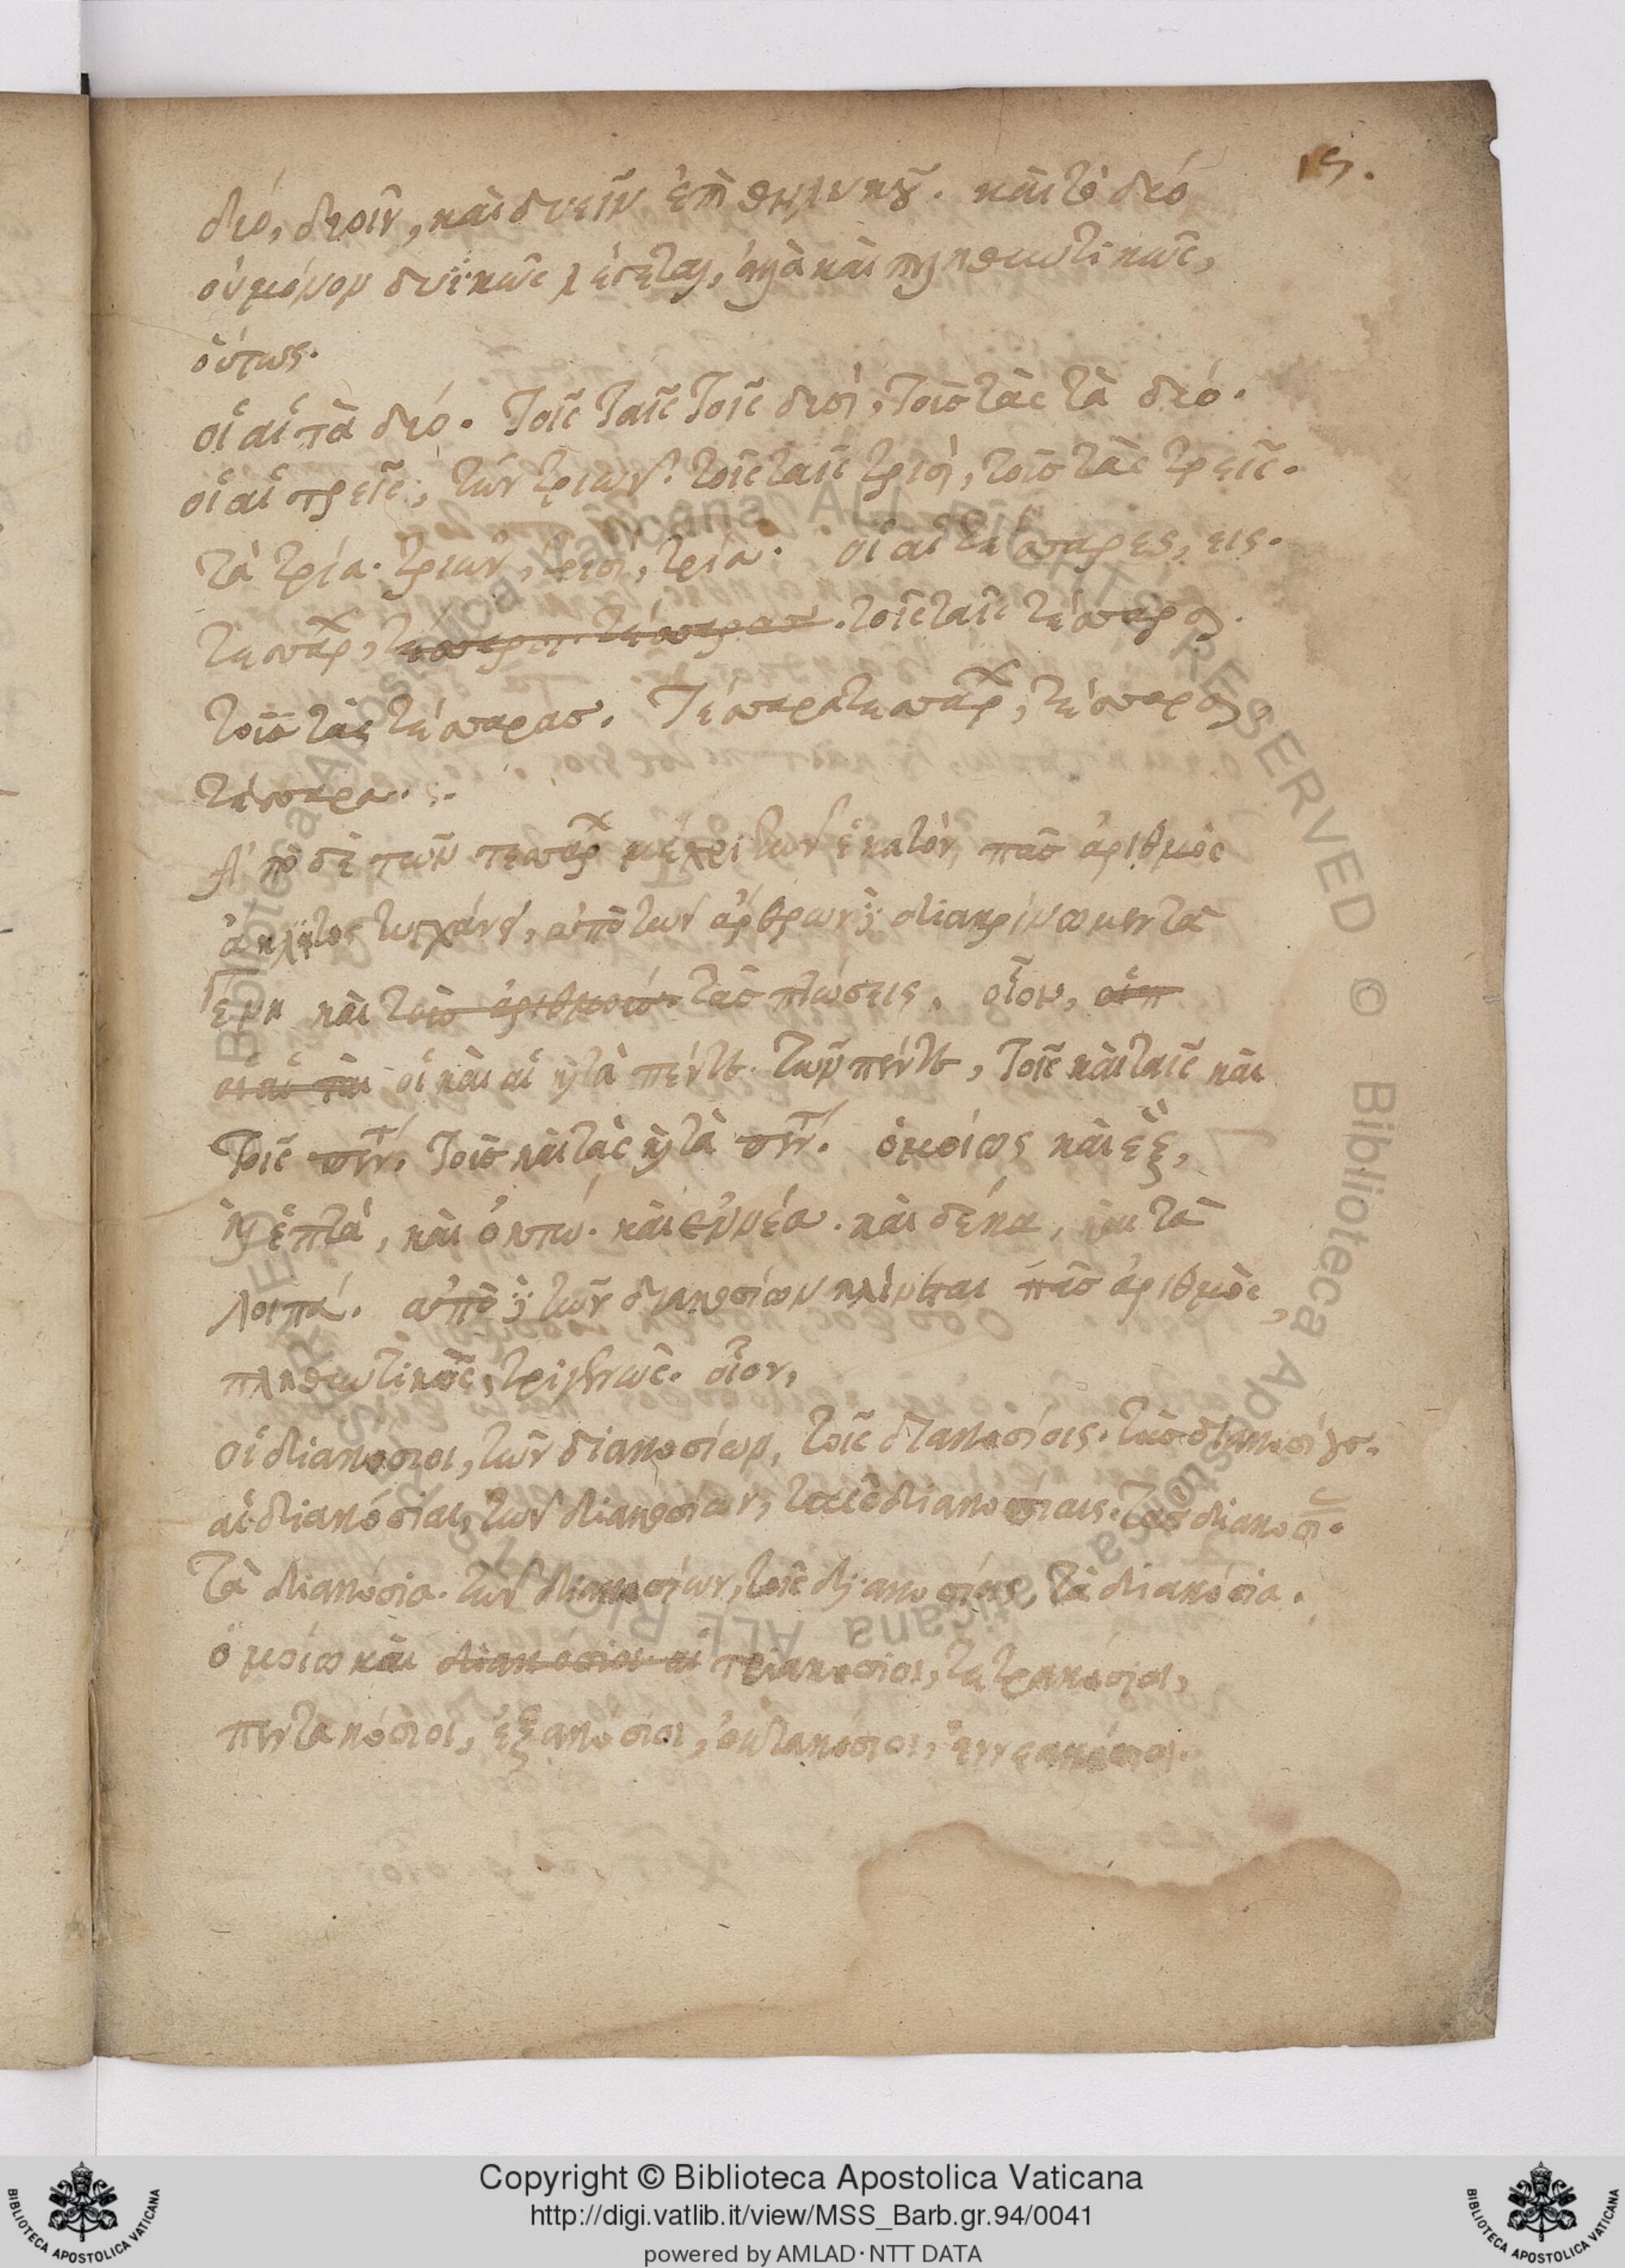 15.
δύο, δυοῖν, καὶ δυεῖν ἐπὶ θηλυκοῦ. καὶ τὸ δύο
οὐ μόνον δυϊκῶς λέγεται, ἀλλὰ καὶ πληθυντικῶς,
οὕτως.
οἱ αἱ τὰ δύο. τοῖς ταῖς τοῖς δυσὶ, τοὺς τὰς τὰ δύο.
οἱ αἱ τρεῖς, τῶν τριῶν. τοῖς ταῖς τρισὶ, τοὺς τὰς τρεῖς.
τὰ τρία. τριῶν, τρισι, τρία. οἱ αἱ τέσσαρες, εις.
τεσσάρ, τέσσαρσι. τέσσαρας. τοῖς ταῖς τέσσαρσι.
τοὺς τὰς τέσσαρας. Τέσσαρα τεσσάρ, τέσσαρσι,
τέσσαρα.
Ἀπὸ δὲ τῶν τεσσάρ μέχρι τῶν ἑκατὸν, πᾶς ἀριθμὸς
ἄκλιτος τυγχάνει, ἀπὸ τῶν ἄρθρων δὲ διακρίνομεν τὰ
γένη καὶ τοὺς ἀριθμοὺς. τὰς πτώσεις. οἷον, οἱ π
οἱ αἱ τὰ οἱ καὶ αἱ καὶ τὰ πέντε. τῶν πέντε, τοῖς καὶ ταῖς καὶ
τοῖς πέντ. τοὺς καὶ τὰς καὶ τὰ πέντ. ὁμοίως καὶ ἓξ,
καὶ ἑπτὰ, καὶ ὀκτώ. καὶ ἐννέα. καὶ δέκα, καὶ τὰ
λοιπά. ἀπὸ δὲ τῶν διακοσίων κλίνεται πᾶς ἀριθμὸς,
πληθυντικῶς, τριγενῶς. οἷον,
οἱ διακόσιοι, τῶν διακοσίων, τοῖς διακοσίοις. τοὺς διακοσίους.
αἱ διακόσιαι, τῶν διακοσίων, ταῖς διακοσίαις. τὰς διακοσι.
τὰ διακόσια. τῶν διακοσίων, τοῖς διακοσίοις, τὰ διακόσια.
ὁμοίως καὶ διακόσιοι αἱ τριακόσιοι, τετρακόσιοι,
πεντακόσιοι, ἑξακόσιοι, ὀκτακόσιοι, ἐννεακόσιοι.
Copyright © Biblioteca Apostolica Vaticana
http://digi.vatlib.it/view/MSS_Barb.gr.94/0041
powered by AMLAD·NTT DATA